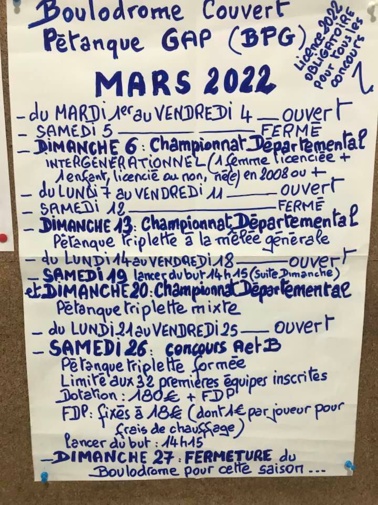 Boulodrome Couvert
Pétanque GAP (BPG)
Licence 2022
OBLIGATOIRE
pour tous les
concours
MARS 2022
- du MARDI 1er au VENDREDI 4 — OUVERT
- SAMEDI 5 — FERMÉ
- DIMANCHE 6: Championnat Départemental
INTERGÉNÉRATIONNEL (1 femme licenciée +
1 enfant, licencié ou non, né(e) en 2008 ou +
- du LUNDI 7 au VENDREDI 11 — OUVERT
- SAMEDI 12 — FERMÉ
- DIMANCHE 13: Championnat Départemental
Pétanque triplette à la mêlée générale
- du LUNDI 14 au VENDREDI 18 — OUVERT
- SAMEDI 19 lancer du but 14h15 (suite Dimanche)
et DIMANCHE 20: Championnat Départemental
Pétanque triplette mixte
- du LUNDI 21 au VENDREDI 25 — OUVERT
- SAMEDI 26: concours A et B
Pétanque triplette formée
Limité aux 32 premières équipes inscrites
Dotation: 180€ + FDP
FDP: fixés à 18€ (dont 1€ par joueur pour
frais de chauffage)
Lancer du but: 14h15
- DIMANCHE 27: FERMETURE du
Boulodrome pour cette saison...